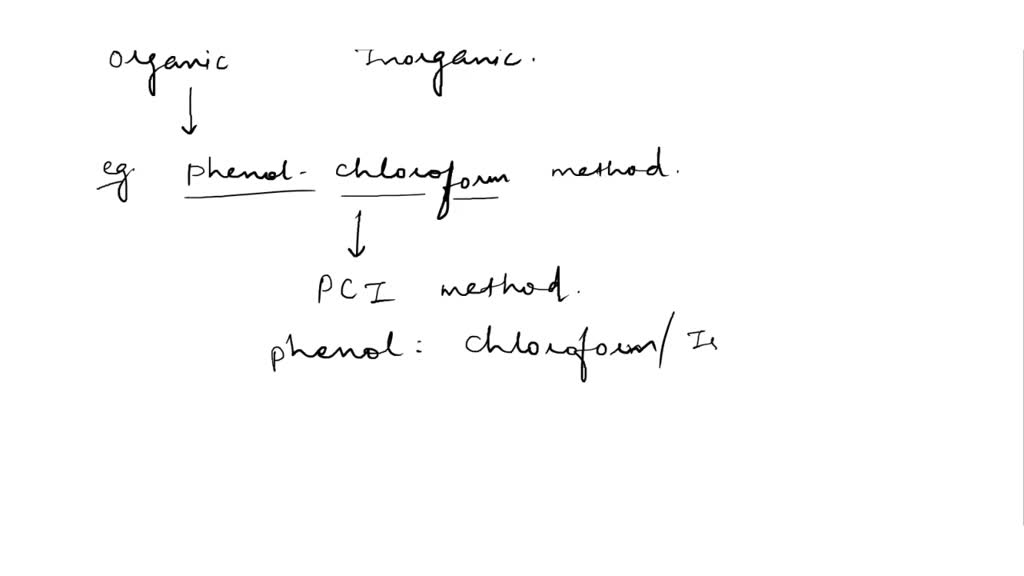 Organic Inorganic.
eg phenol- chloroform method.
PCI method.
phenol: chloroform/ Is